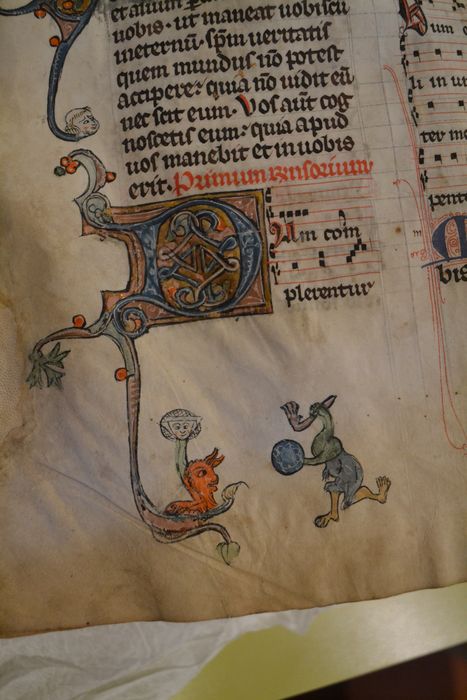 et alium
uobis · ut maneat uobiscū
ineternū · spm̄ ueritatis
quem mundus nō potest
accipere: quia nō uidit eū
nec scit eum. Vos aūt cog
noscetis eum: quia apud
uos manebit et in uobis
erit. Primum
Dum com
plerentur
li in ut
ter me
pent
bis